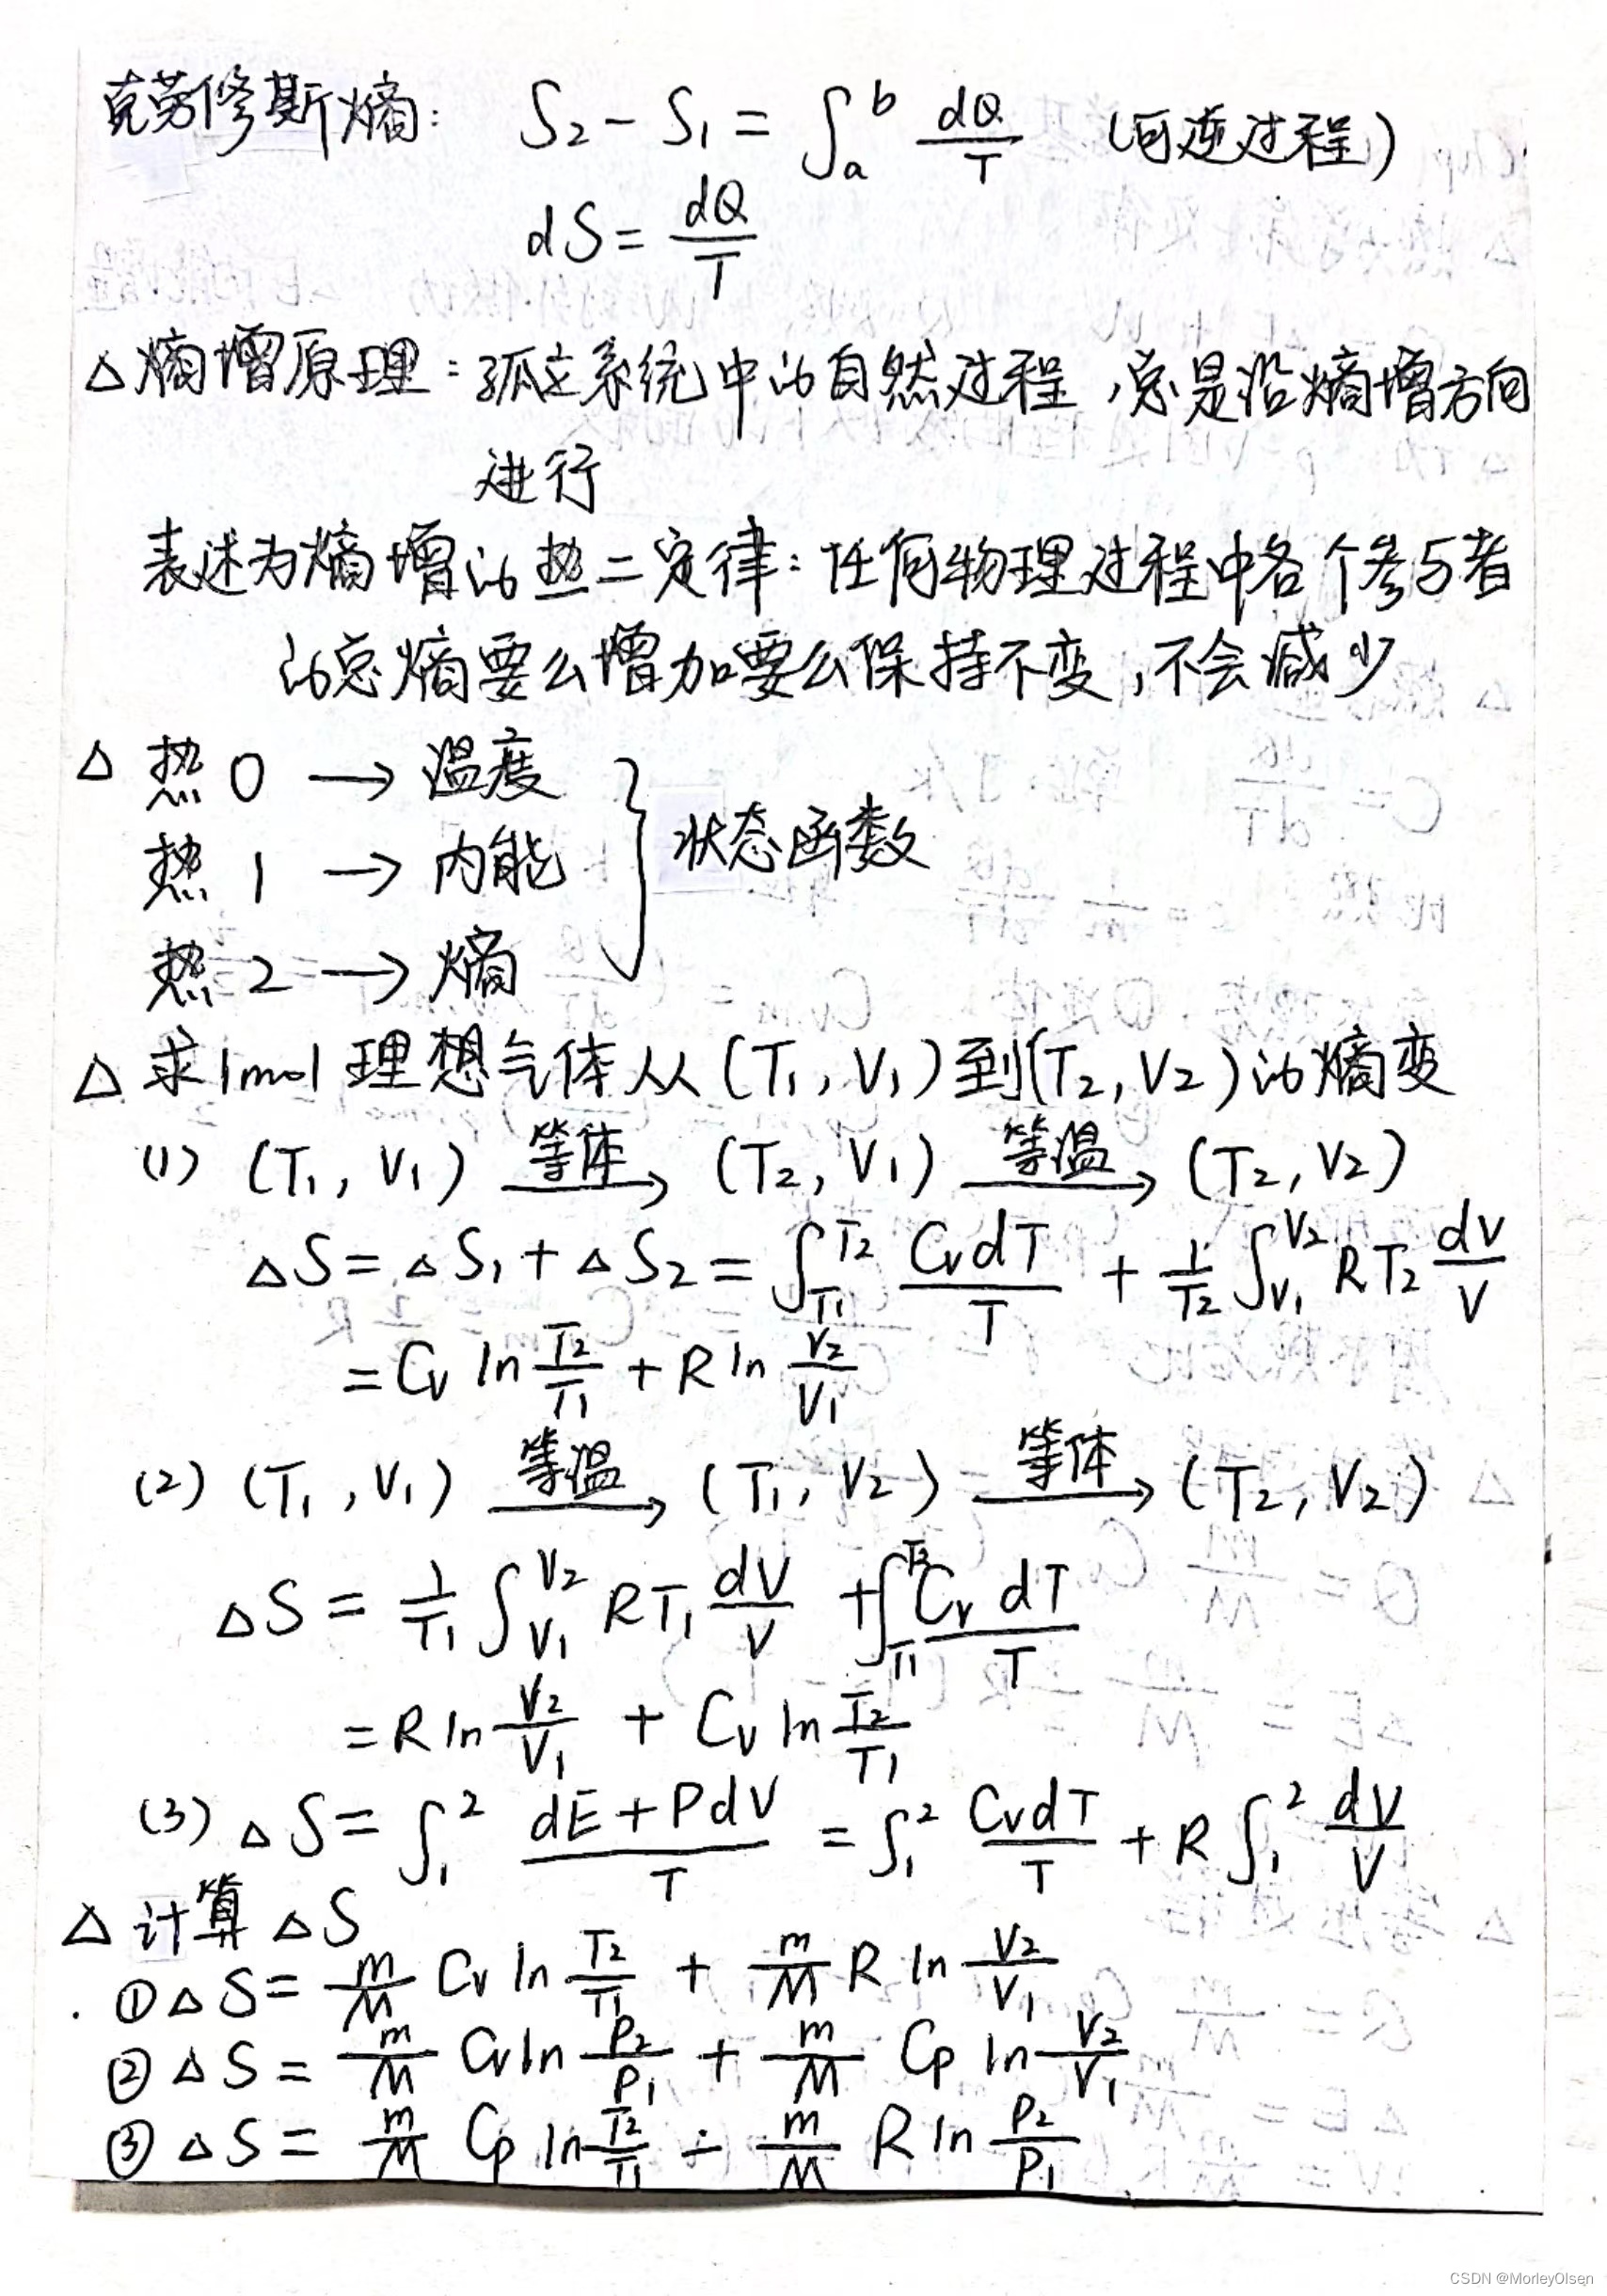 克劳修斯熵: S₂ - S₁ = ∫ₐᵇ dQ/T (可逆过程)
dS = dQ/T
△ 熵增原理: 孤立系统中的自然过程,总是沿熵增方向
进行
表述为熵增的热二定律: 任何物理过程中各个参与者
的总熵要么增加要么保持不变,不会减少
△ 热 0 → 温度
热 1 → 内能 } 状态函数
热 2 → 熵
△ 求1mol理想气体从(T₁, V₁)到(T₂, V₂)的熵变
(1) (T₁, V₁) —等体→ (T₂, V₁) —等温→ (T₂, V₂)
△S = △S₁ + △S₂ = ∫_{T₁}^{T₂} CvdT/T + 1/T₂ ∫_{V₁}^{V₂} RT₂ dV/V
= Cv ln T₂/T₁ + R ln V₂/V₁
(2) (T₁, V₁) —等温→ (T₁, V₂) —等体→ (T₂, V₂)
△S = 1/T₁ ∫_{V₁}^{V₂} RT₁ dV/V + ∫_{T₁}^{T₂} Cv dT/T
= R ln V₂/V₁ + Cv ln T₂/T₁
(3) △S = ∫₁² (dE + PdV)/T = ∫₁² CvdT/T + R ∫₁² dV/V
△ 计算△S
① △S = m/M Cv ln T₂/T₁ + m/M R ln V₂/V₁
② △S = m/M Cv ln P₂/P₁ + m/M Cp ln V₂/V₁
③ △S = m/M Cp ln T₂/T₁ - m/M R ln P₂/P₁
CSDN @MorleyOlsen